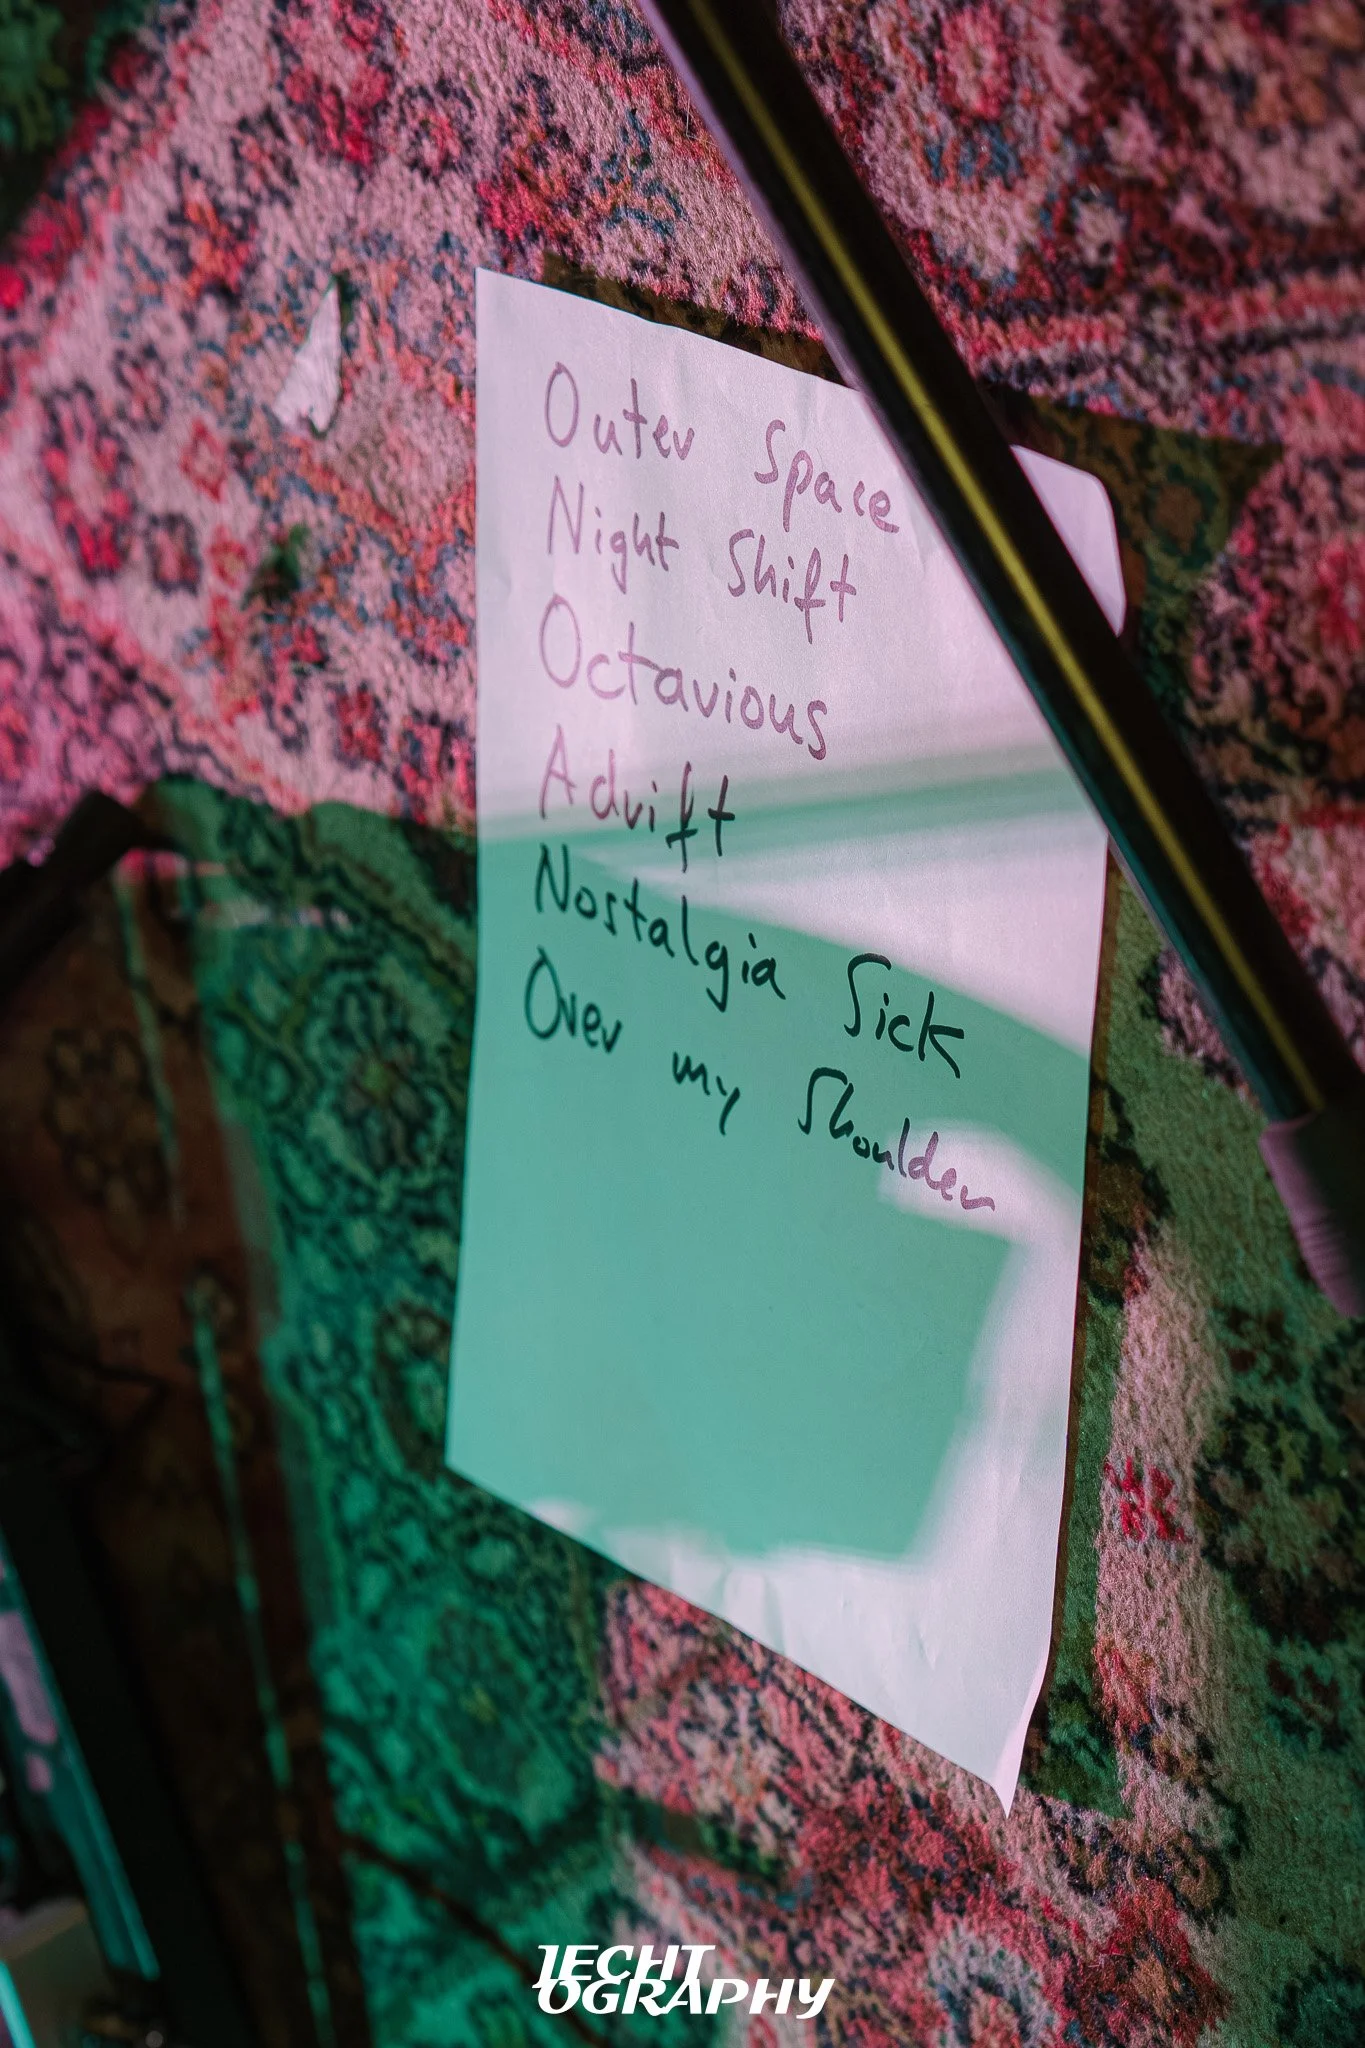 Outer Space
Night Shift
Octavious
Adrift
Nostalgia Sick
Over my Shoulder
1ECHT
OGRAPHY